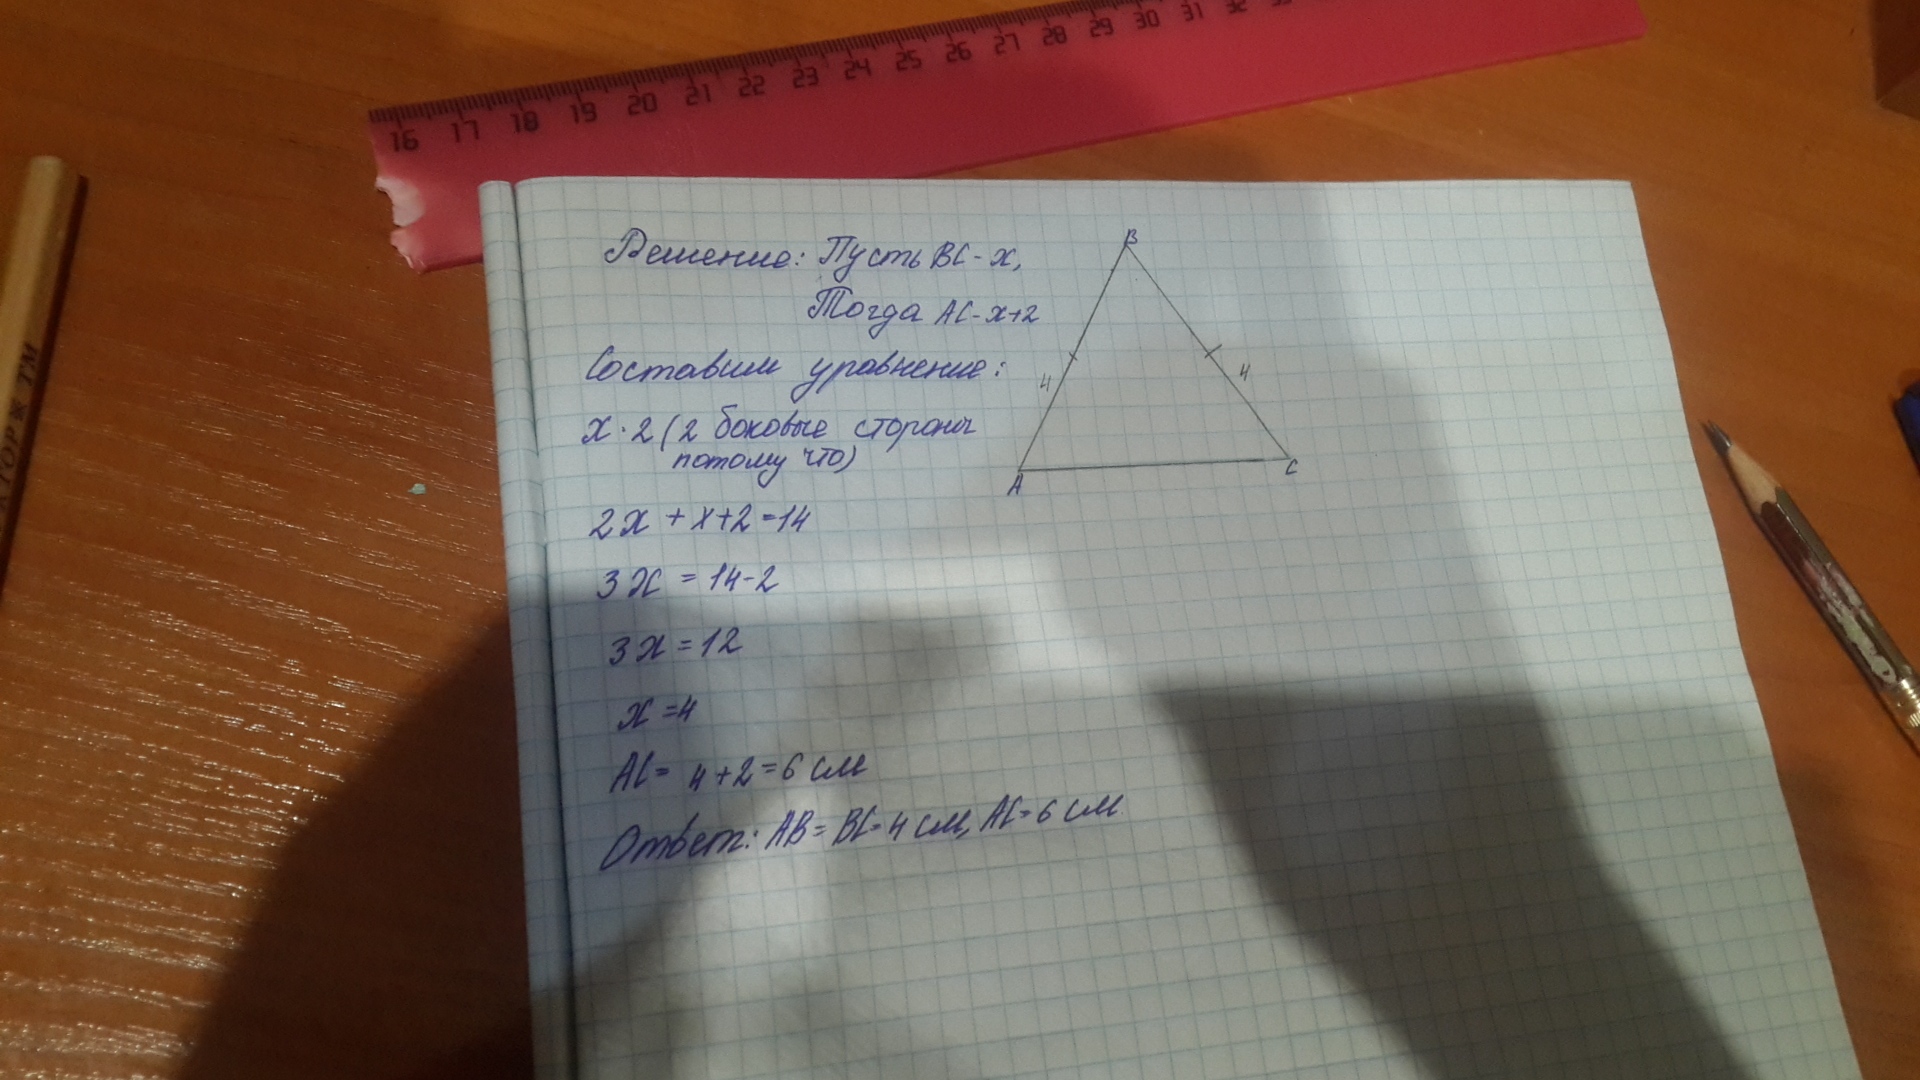 16 17 18 19 20 21 22 23 24 25 26 27 28 29 30 31 32 33
Решение: Пусть BC - x,
Тогда AC - x+2
Составим уравнение:
x · 2 (2 боковые стороны
потому что)
2x + x+2 = 14
3x = 14-2
3x = 12
x = 4
AC = 4+2 = 6 см
Ответ: AB = BC = 4 см, AC = 6 см.
B
4
4
A
C
TM